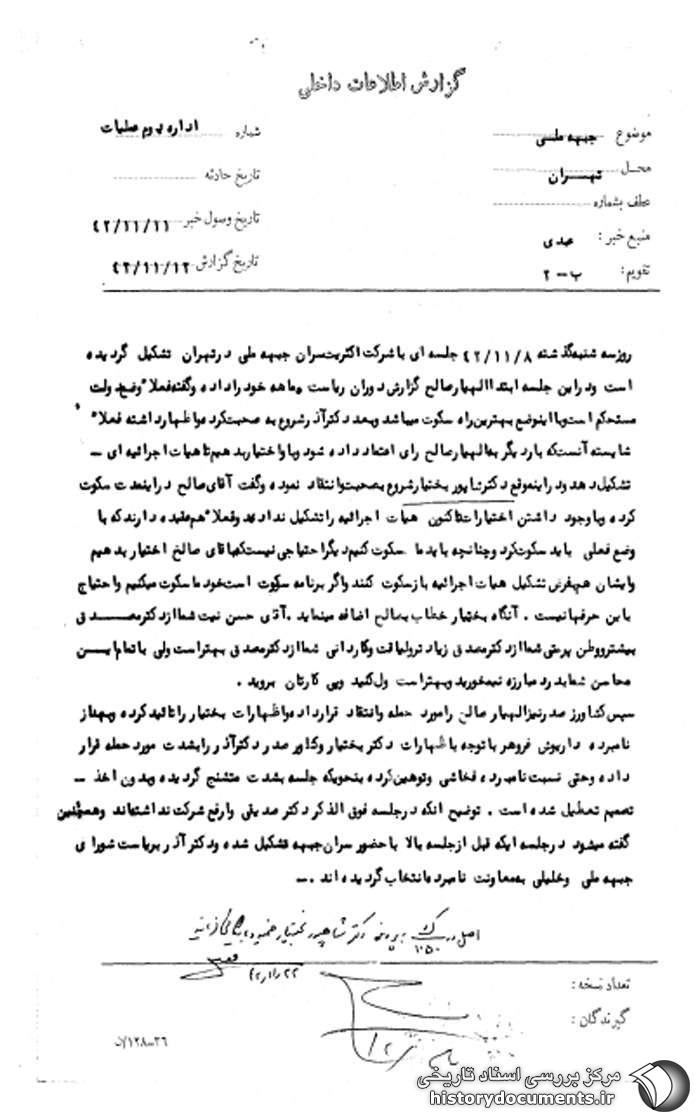 گزارش اطلاعات داخلی
موضوع جبهه ملی
محل تهران
عطف بشماره
منبع خبر : عبدی
تقویم : ب - ۲
شماره اداره دوم عملیات
تاریخ حادثه
تاریخ وصول خبر ۴۲/۱۱/۱۱
تاریخ گزارش ۴۲/۱۱/۱۲
روز سه شنبه گذشته ۴۲/۱۱/۸ جلسه ای با شرکت اکثریت سران جبهه ملی در تهران تشکیل گردیده
است و در این جلسه ابتدا الهیار صالح گزارش دوران ریاست ماهه خود را داده و گفته فعلا" وضع دولت
مستحکم است و با این وضع بهترین راه سکوت میباشد و بعد دکتر آذر شروع به صحبت کرده و اظهار داشته فعلا"
شایسته آنست که بار دیگر به الهیار صالح رای اعتماد داده شود و با و اختیار بدهیم تا هیات اجرائیه ای -
تشکیل دهد و در این موقع دکتر شاپور بختیار شروع بصحبت و انتقاد نموده و گفت آقای صالح در اینمدت سکوت
کرده و با وجود داشتن اختیارات تاکنون هیات اجرائیه را تشکیل نداده و فعلا" هم عقیده دارند که با
وضع فعلی باید سکوت کرد و چنانچه باید ما سکوت کنیم دیگر احتیاجی نیست که باقای صالح اختیار بدهیم
و ایشان هم بفرض تشکیل هیات اجرائیه باز سکوت کنند و اگر برنامه سکوت است خود ما سکوت میکنیم و احتیاج
باین حرفها نیست . آنگاه بختیار خطاب بصالح اضافه مینماید . آقای حسن نیت شما از دکتر مصدق
بیشتر و وطن پرستی شما از دکتر مصدق زیاد تر و لیاقت و کاردانی شما از دکتر مصدق بهتر است ولی با تمام این
محاسن شما بدرد مبارزه نمیخورید و بهتر است ول کنید و پی کارتان بروید .
سپس کشاورز صدر نیز الهیار صالح را مورد حمله و انتقاد قرار داده و اظهارات بختیار را تائید کرده و بعد از
نامبرده داریوش فروهر با توجه باظهارات دکتر بختیار و کشاورز صدر دکتر آذر را بشدت مورد حمله قرار
داده و حتی نسبت نامبرده فحاشی و توهین کرده بنحویکه جلسه بشدت متشنج گردیده و بدون اخذ -
تصمیم تعطیل شده است . توضیح انکه در جلسه فوق الذکر دکتر صدیقی و ارفع شرکت نداشته اند و همچنین
گفته میشود در جلسه ایکه قبل از جلسه بالا با حضور سران جبهه تشکیل شده و دکتر آذر بریاست شورای
جبهه ملی و خلیلی به معاونت نامبرده انتخاب گردیده اند . --
اصل در پرونده دکتر شاپور بختیار
تعداد نسخه :
گیرندگان :
۳۶-۱۲۸
مرکز بررسی اسناد تاریخی
historydocuments.ir